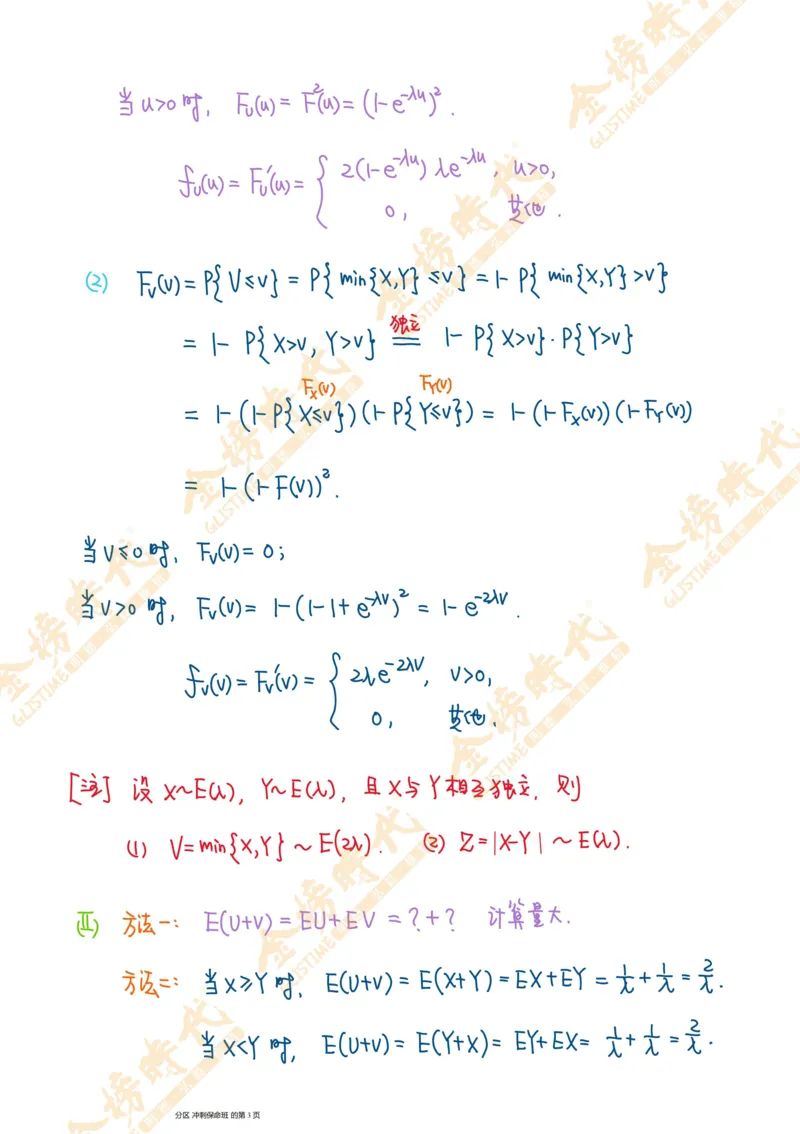 当u>0时, F_U(u)=F²(u)=(1-e^{-λu})².
f_U(u)=F_U'(u)={ 2(1-e^{-λu})λe^{-λu}, u>0,
0, 其他.
(2) F_V(v)=P{V≤v}=P{min{X,Y}≤v}=1-P{min{X,Y}>v}
=1-P{X>v, Y>v} 独立== 1-P{X>v}·P{Y>v}
F_X(v) F_Y(v)
=1-(1-P{X≤v})(1-P{Y≤v})=1-(1-F_X(v))(1-F_Y(v))
=1-(1-F(v))².
当v≤0时, F_V(v)=0;
当v>0时, F_V(v)=1-(1-1+e^{-λv})²=1-e^{-2λv}.
f_V(v)=F_V'(v)={ 2λe^{-2λv}, v>0,
0, 其他.
[注] 设X~E(λ), Y~E(λ), 且X与Y相互独立, 则
(1) V=min{X,Y}~E(2λ). (2) Z=|X-Y|~E(λ).
(Ⅱ) 方法一: E(U+V)=EU+EV=?+? 计算量大.
方法二: 当X≥Y时, E(U+V)=E(X+Y)=EX+EY=1/λ+1/λ=2/λ.
当X<Y时, E(U+V)=E(Y+X)=EY+EX=1/λ+1/λ=2/λ.
分区 冲刺保命班 的第 3 页
金榜時代
GLISTIME